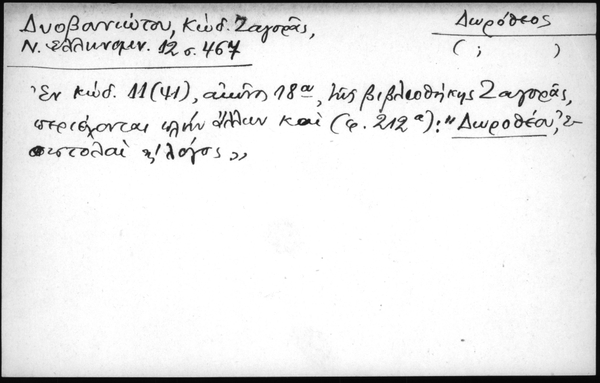 Δυοβουνιώτου, Κώδ. Ζαγορᾶς,
Ν. Ἑλληνομν. 12 σ. 467
Δωρόθεος
( ; )
Ἐν κώδ. 11(41), αἰῶνος 18ου, τῆς βιβλιοθήκης Ζαγορᾶς,
περιέχονται πλὴν ἄλλων καὶ (φ. 212α): "Δωροθέου, ἐ-
πιστολαὶ κ' λόγος"